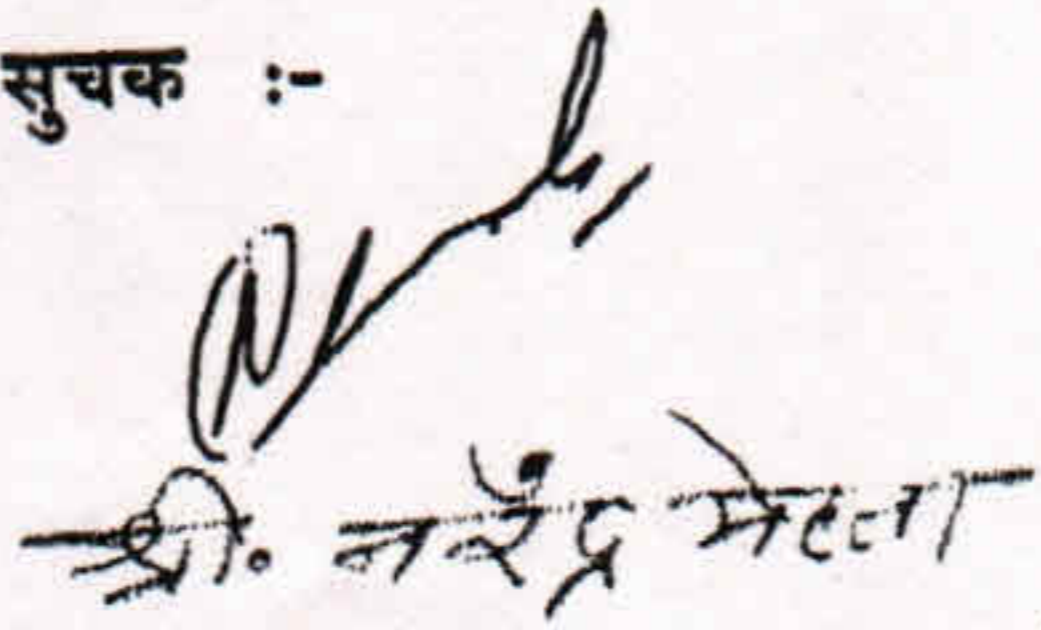 सुचक :-
श्री. नरेंद्र मेहता